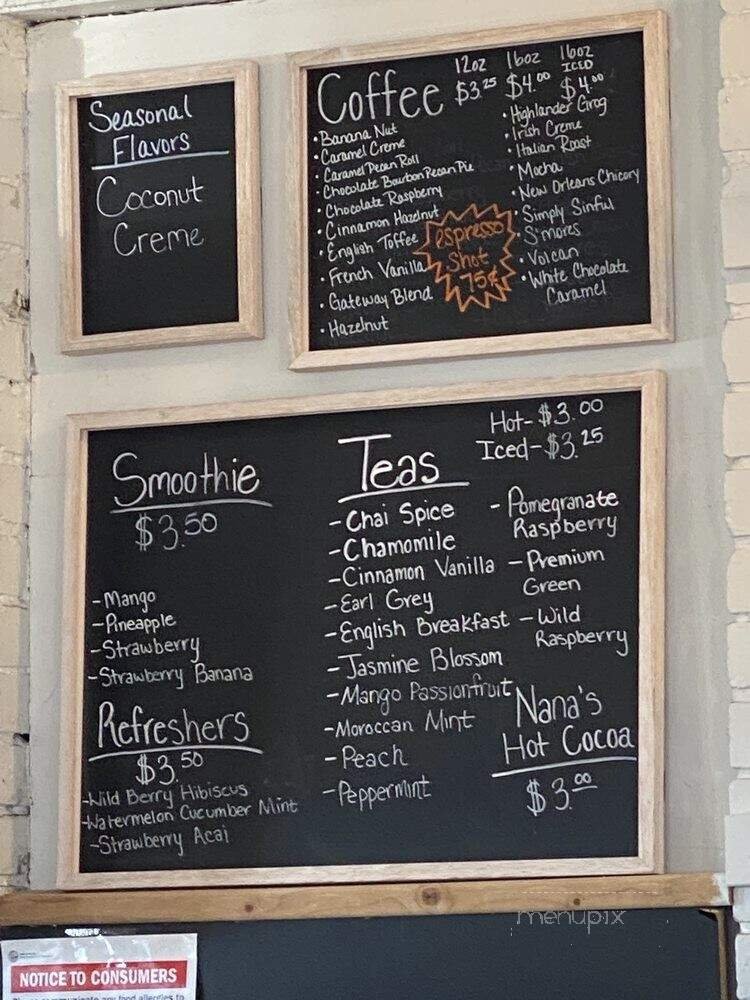 Seasonal
Flavors
Coconut
Creme
Coffee
12oz
$3.25
16oz
$4.00
16oz
ICED
$4.00
• Banana Nut
• Caramel Creme
• Caramel Pecan Roll
• Chocolate Bourbon Pecan Pie
• Chocolate Raspberry
• Cinnamon Hazelnut
• English Toffee
• French Vanilla
• Gateway Blend
• Hazelnut
• Highlander Grog
• Irish Creme
• Italian Roast
• Mocha
• New Orleans Chicory
• Simply Sinful
• S'mores
• Volcan
• White Chocolate
Caramel
espresso
shot
75¢
Smoothie
$3.50
-Mango
-Pineapple
-Strawberry
-Strawberry Banana
Refreshers
$3.50
-Wild Berry Hibiscus
-Watermelon Cucumber Mint
-Strawberry Acai
Teas
Hot- $3.00
Iced-$3.25
-Chai Spice
-Chamomile
-Cinnamon Vanilla
-Earl Grey
-English Breakfast
-Jasmine Blossom
-Mango Passionfruit
-Moroccan Mint
-Peach
-Peppermint
-Pomegranate
Raspberry
-Premium
Green
-Wild
Raspberry
Nana's
Hot Cocoa
$3.00
menupix
NOTICE TO CONSUMERS
any food allergies to